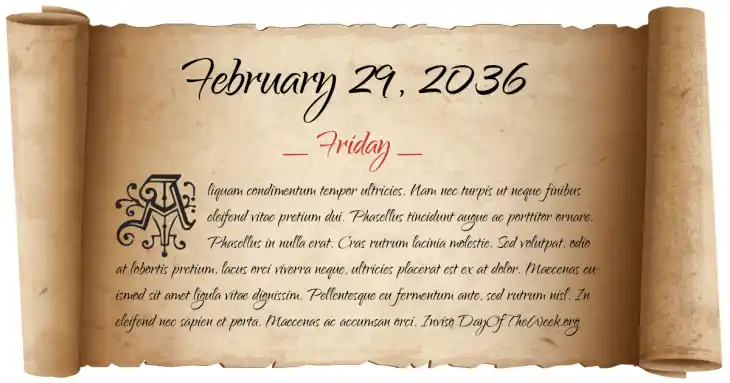 February 29, 2036
_ Friday _
Aliquam condimentum tempor ultricies. Nam nec turpis ut neque finibus
eleifend vitae pretium dui. Phasellus tincidunt augue ac porttitor ornare.
Phasellus in nulla erat. Cras rutrum lacinia molestie. Sed volutpat, odio
at lobortis pretium, lacus orci viverra neque, ultricies placerat est ex at dolor. Maecenas eu-
ismod sit amet ligula vitae dignissim. Pellentesque eu fermentum ante, sed rutrum nisl. In
eleifend nec sapien et porta. Maecenas ac accumsan orci. Inviso DayOfTheWeek.org